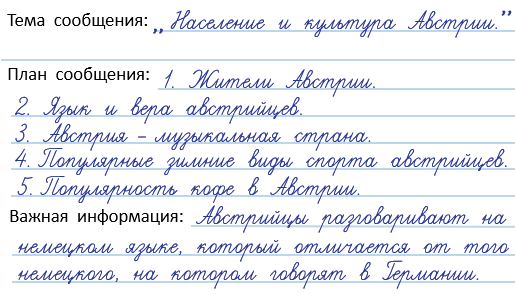 Тема сообщения: „Население и культура Австрии."
План сообщения: 1. Жители Австрии.
2. Язык и вера австрийцев.
3. Австрия – музыкальная страна.
4. Популярные зимние виды спорта австрийцев.
5. Популярность кофе в Австрии.
Важная информация: Австрийцы разговаривают на
немецком языке, который отличается от того
немецкого, на котором говорят в Германии.